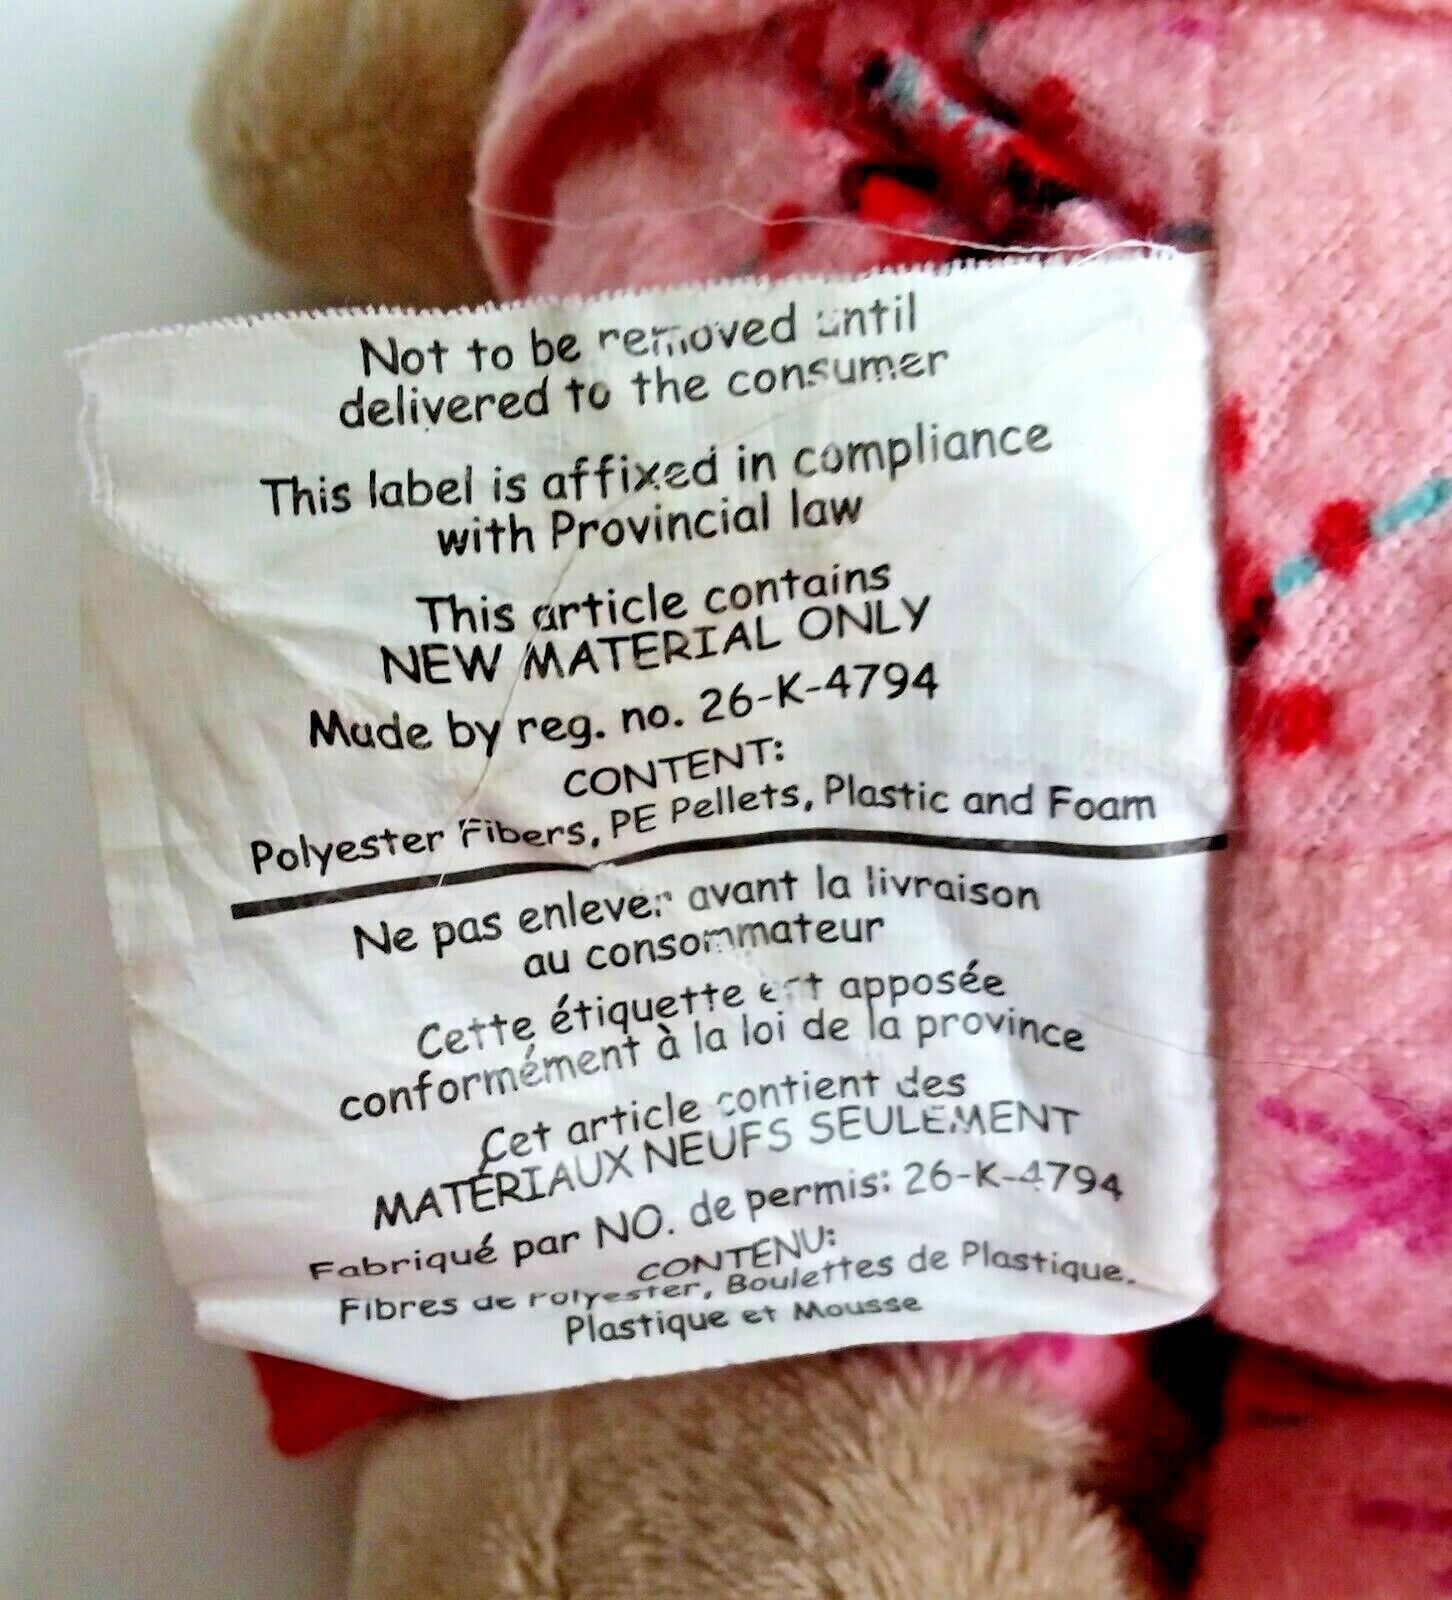 Not to be removed until
delivered to the consumer
This label is affixed in compliance
with Provincial law
This article contains
NEW MATERIAL ONLY
Made by reg. no. 26-K-4794
CONTENT:
Polyester Fibers, PE Pellets, Plastic and Foam
Ne pas enlever avant la livraison
au consommateur
Cette étiquette est apposée
conformément à la loi de la province
Cet article contient des
MATÉRIAUX NEUFS SEULEMENT
Fabriqué par NO. de permis: 26-K-4794
CONTENU:
Fibres de Polyester, Boulettes de Plastique,
Plastique et Mousse